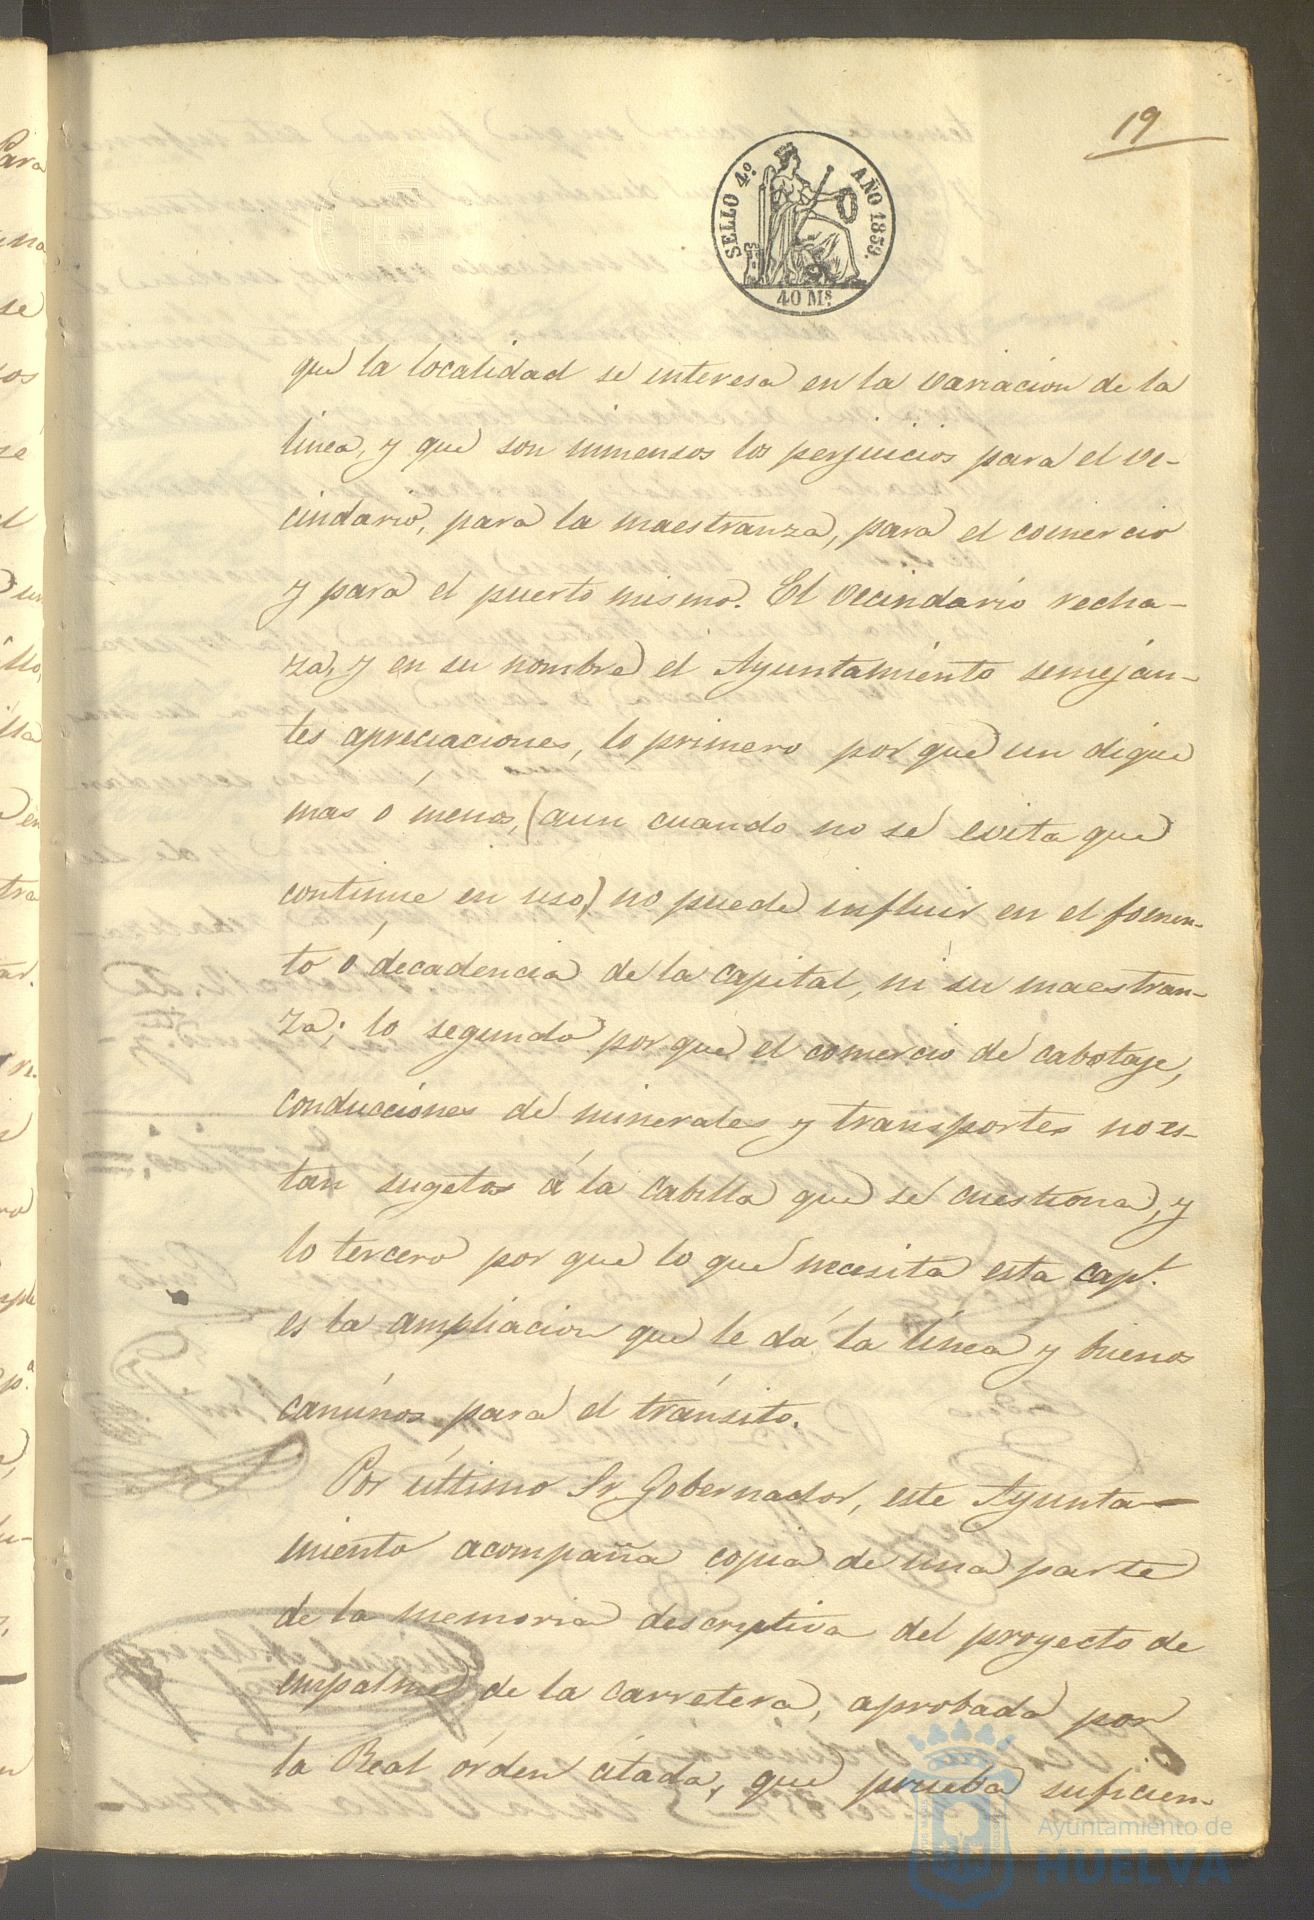 19
SELLO 4.º AÑO 1859.
40 Ms.
que la localidad se interesa en la variacion de la
linea, y que son inmensos los perjuicios para el ve-
cindario, para la maestranza, para el comercio
y para el puerto mismo. El vecindario recha-
za, y en su nombre el Ayuntamiento semejan-
tes apreciaciones, lo primero por que un dique
mas ó menos, (aun cuando no se evita que
continue en uso,) no puede influir en el fomen-
to ó decadencia de la capital, ni su maestran-
za; lo segundo por que el comercio de cabotaje,
conducciones de minerales y transportes no es-
tan sugetos á la cabilla que se cuestiona, y
lo tercero por que lo que necesita esta capl.
es la ampliacion que le dá la linea y buenos
caminos para el tránsito.
Por último Sr. Gobernador, este Ayunta-
miento acompaña copia de una parte
de la memoria descriptiva del proyecto de
empalme de la carretera, aprobada por
la Real órden citada, que prueba suficien-
Ayuntamiento de
HUELVA